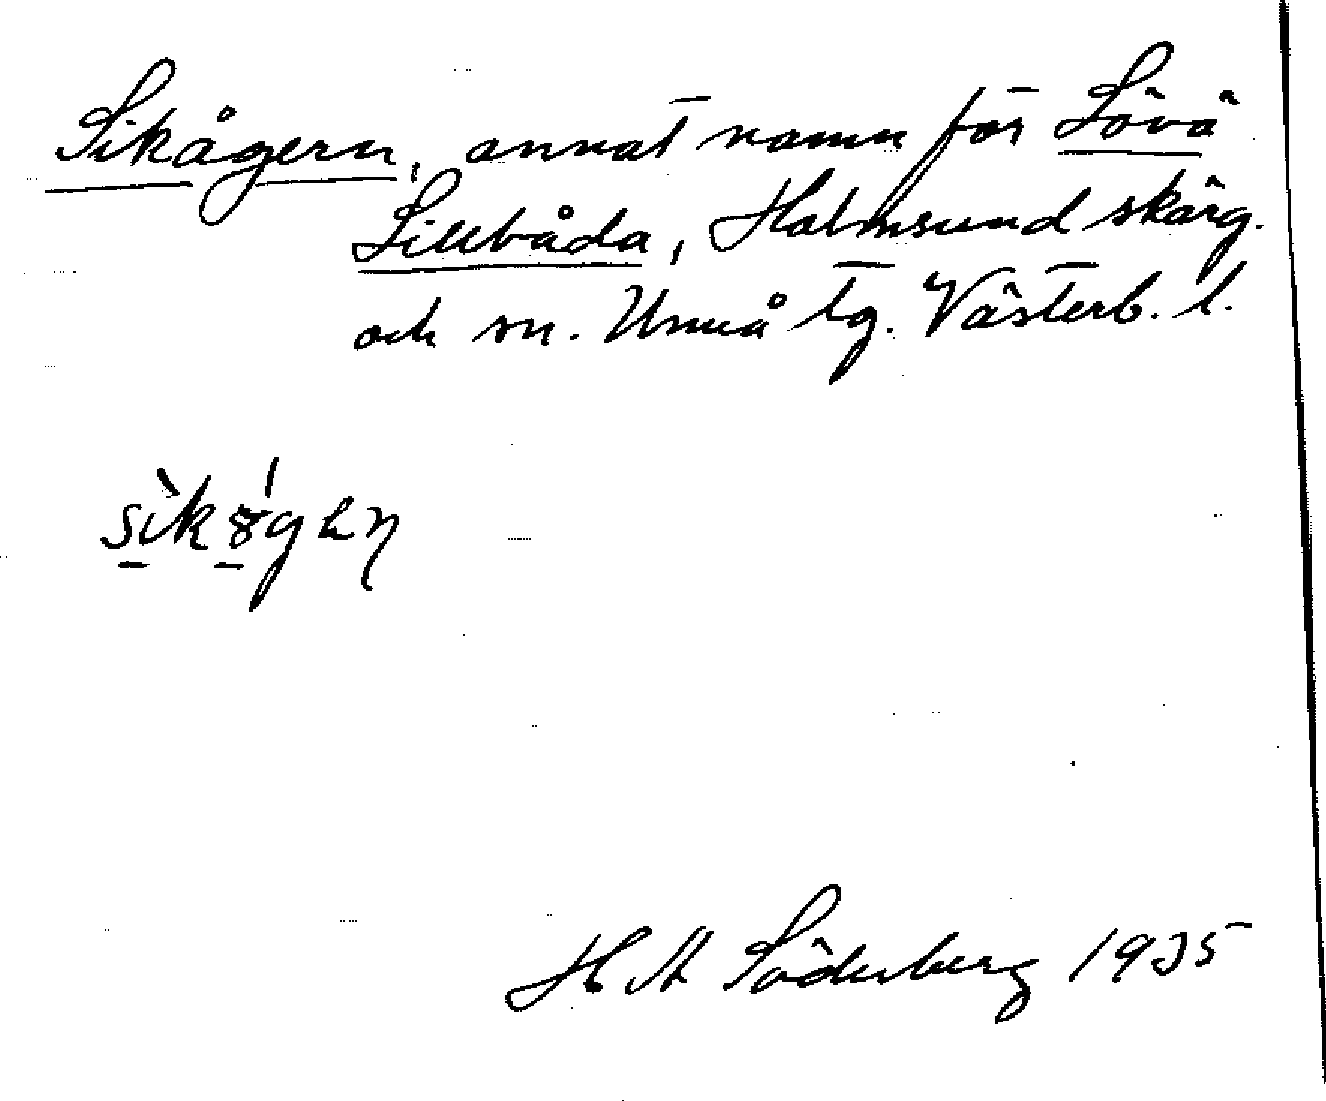 Sikågern, annat namn för Sövä
Sillbåda, Holmsund skärg.
och sn. Umeå tg. Västerb. l.
H A Söderberg 1935